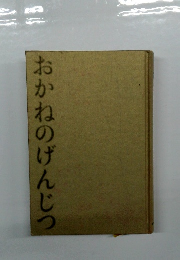 おかねのげんじつ